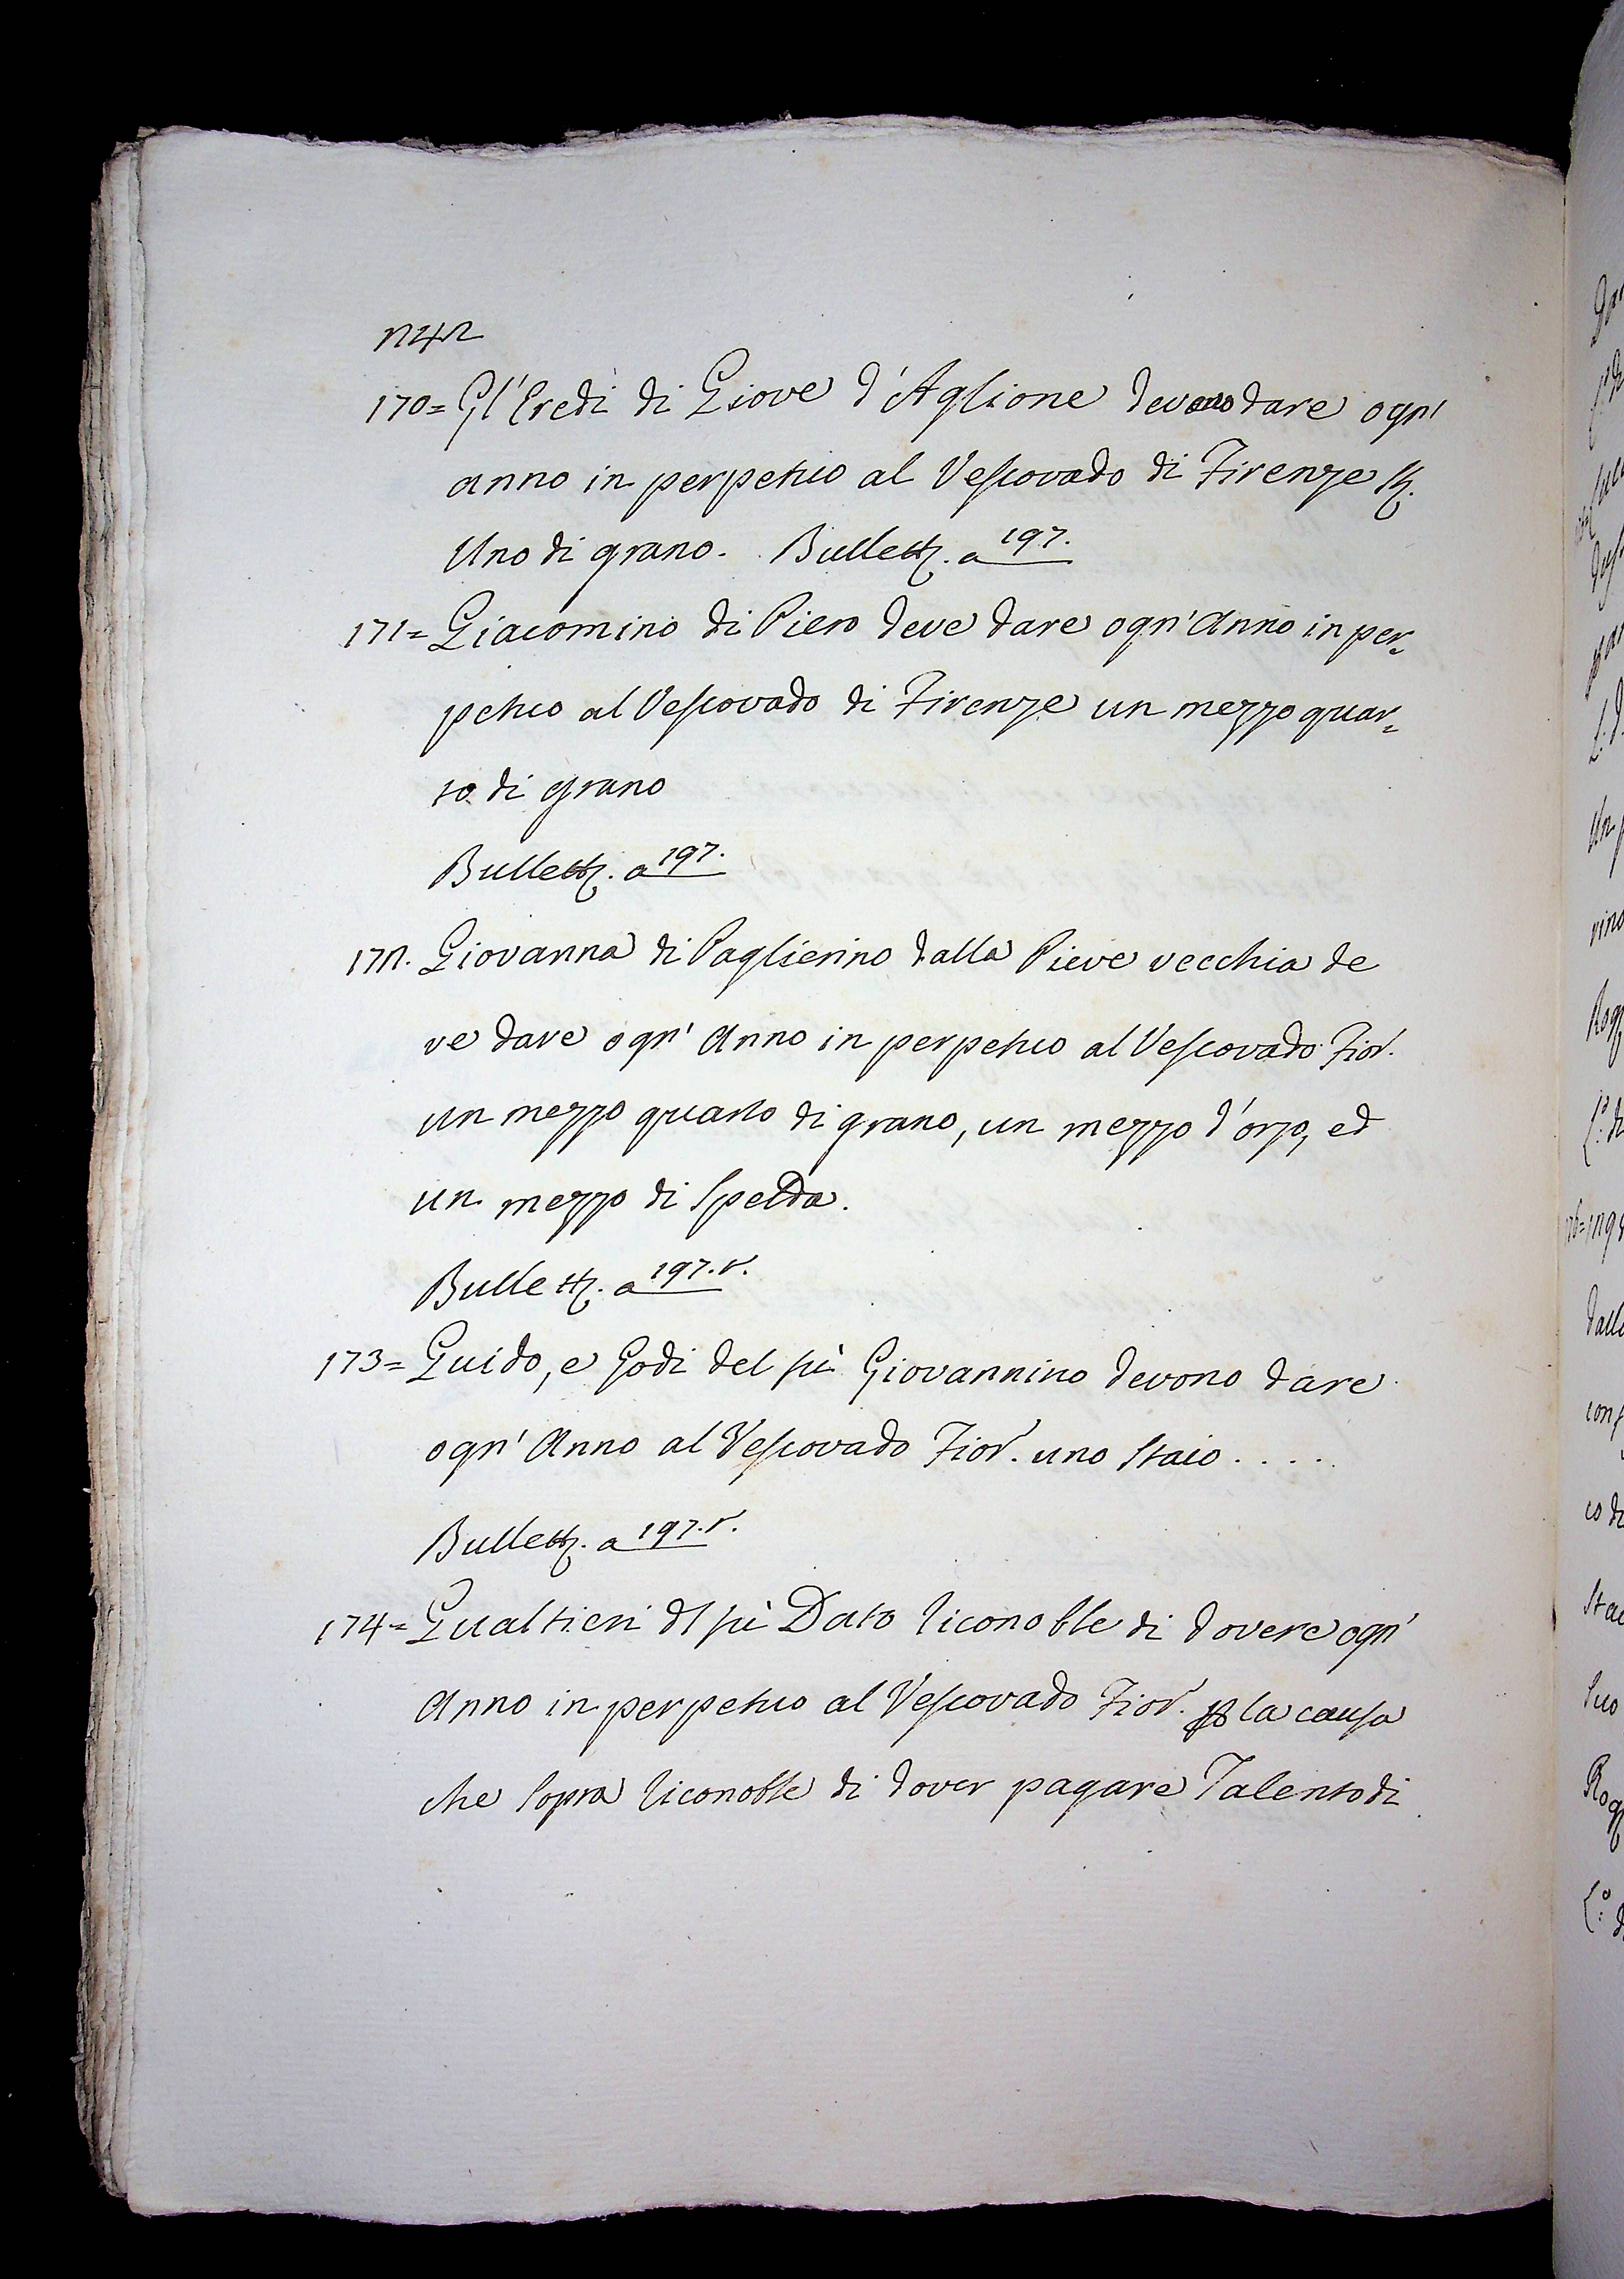 242
170= Gl'Eredi di Giove d'Aglione devono dare ogn'
anno in perpetuo al Vescovado di Firenze St.
Uno di grano. Bullett. a 197.
171= Giacomino di Piero deve dare ogn'Anno in per=
petuo al Vescovado di Firenze un mezzo quar=
to di grano
Bullett. a 197.
172. Giovanna di Paglierino dalla Pieve vecchia de
ve dare ogn' Anno in perpetuo al Vescovado Fior.
un mezzo quarto di grano, un mezzo d'orzo, ed
un mezzo di Spelda.
Bullett. a 197. r.
173= Guido, e Godi del fù Giovannino devono dare
ogn' Anno al Vescovado Fior. uno Staio . . . . .
Bullett. a 197. r.
174= Gualtieri dl fù Dato riconobbe di dovere ogn'
Anno in perpetuo al Vescovado Fior. p la causa
che sopra riconobbe di dover pagare Talento di